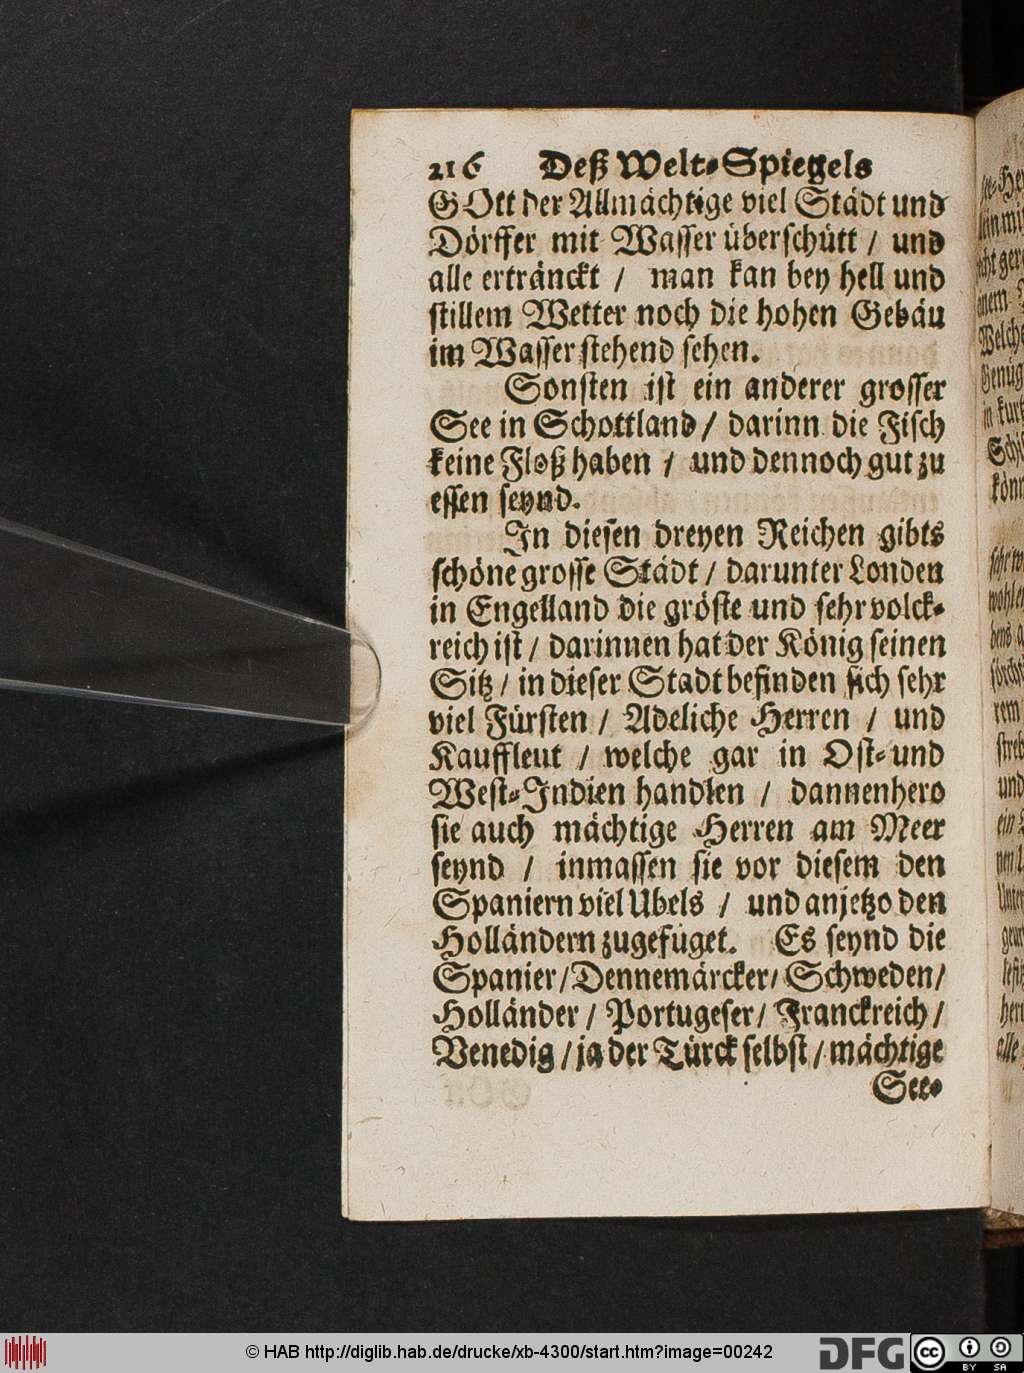 216 Deß Welt-Spiegels
GOtt der Allmächtige viel Städt und
Dörffer mit Wasser überschütt / und
alle erträncкt / man kan bey hell und
stillem Wetter noch die hohen Gebäu
im Wasser stehend sehen.
Sonsten ist ein anderer grosser
See in Schottland / darinn die Fisch
keine Floß haben / und dennoch gut zu
essen seynd.
In diesen dreyen Reichen gibts
schöne grosse Städt / darunter Londen
in Engelland die gröste und sehr volck-
reich ist / darinnen hat der König seinen
Sitz / in dieser Stadt befinden sich sehr
viel Fürsten / Adeliche Herren / und
Kauffleut / welche gar in Ost- und
West-Indien handlen / dannenhero
sie auch mächtige Herren am Meer
seynd / inmassen sie vor diesem den
Spaniern viel Ubels / und anjetzo den
Holländern zugefüget. Es seynd die
Spanier / Dennemärcker / Schweden /
Holländer / Portugeser / Franckreich /
Venedig / ja der Türck selbst / mächtige
See-
© HAB http://diglib.hab.de/drucke/xb-4300/start.htm?image=00242
DFG
cc BY SA